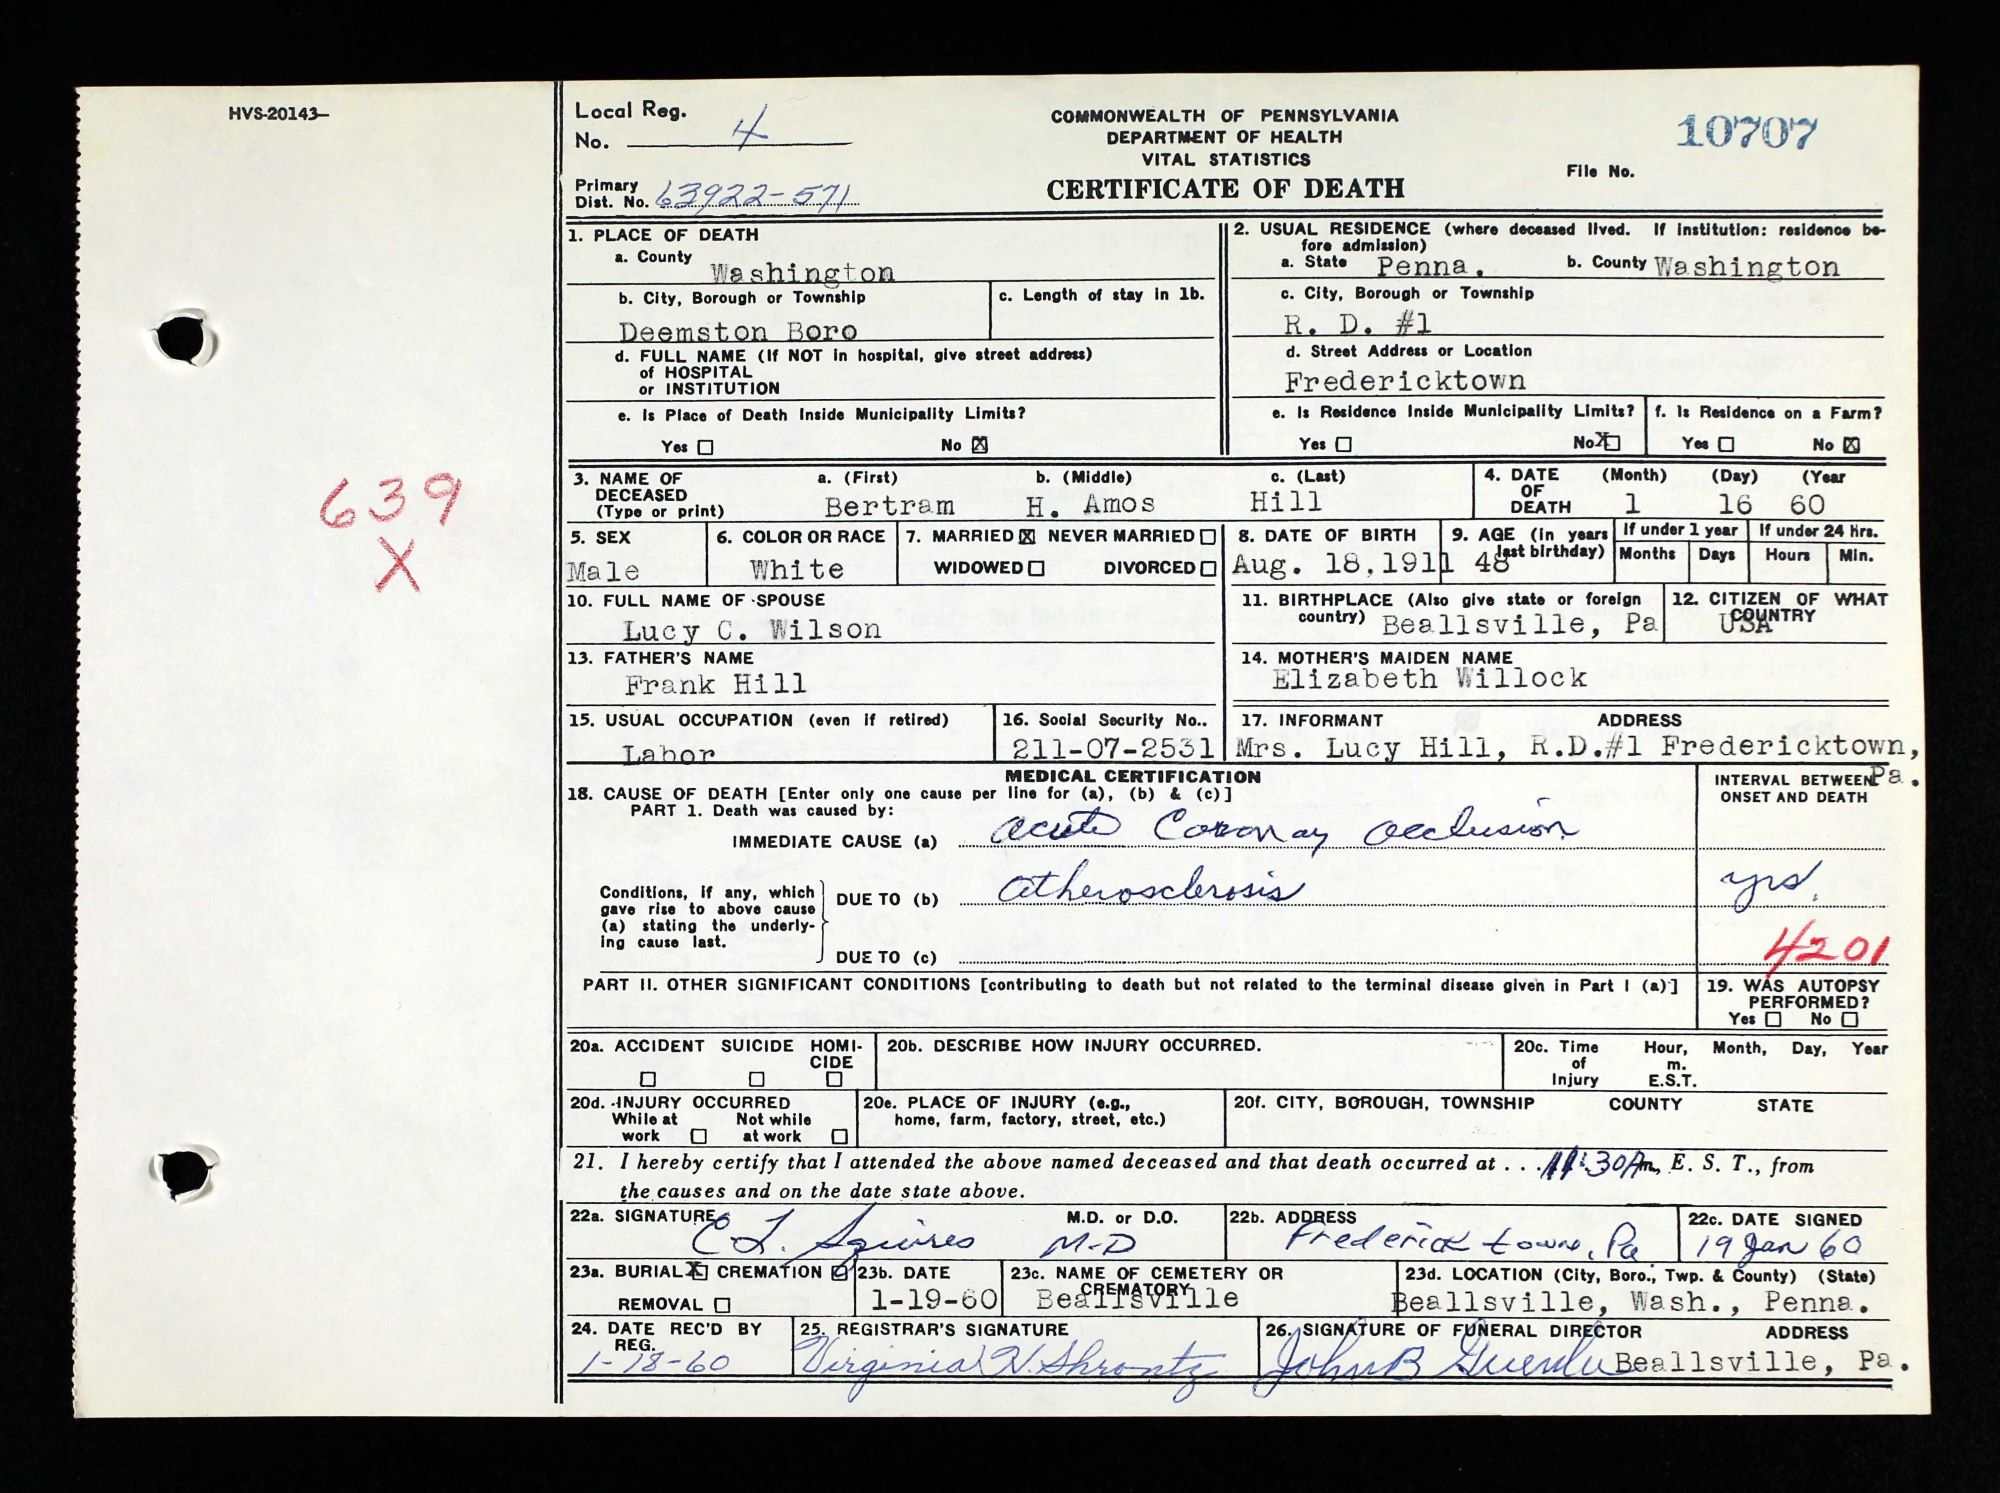 HVS-20143-
Local Reg.
No. 4
Primary
Dist. No. 63922-571
COMMONWEALTH OF PENNSYLVANIA
DEPARTMENT OF HEALTH
VITAL STATISTICS
CERTIFICATE OF DEATH
10707
File No.
1. PLACE OF DEATH
a. County
Washington
b. City, Borough or Township
Deemston Boro
c. Length of stay in 1b.
d. FULL NAME (If NOT in hospital, give street address)
of HOSPITAL
or INSTITUTION
e. Is Place of Death Inside Municipality Limits?
Yes ☐ No ☒
2. USUAL RESIDENCE (where deceased lived. If institution: residence be-
fore admission)
a. State Penna. b. County Washington
c. City, Borough or Township
R. D. #1
d. Street Address or Location
Fredericktown
e. Is Residence Inside Municipality Limits?
Yes ☐ No ☒
f. Is Residence on a Farm?
Yes ☐ No ☒
639
X
3. NAME OF
DECEASED
(Type or print)
a. (First) b. (Middle) c. (Last)
Bertram H. Amos Hill
4. DATE
OF
DEATH
(Month) (Day) (Year
1 16 60
5. SEX
Male
6. COLOR OR RACE
White
7. MARRIED ☒ NEVER MARRIED ☐
WIDOWED ☐ DIVORCED ☐
8. DATE OF BIRTH
Aug. 18,1911
9. AGE (In years
last birthday)
48
If under 1 year
Months Days
If under 24 hrs.
Hours Min.
10. FULL NAME OF SPOUSE
Lucy C. Wilson
11. BIRTHPLACE (Also give state or foreign
country) Beallsville, Pa
12. CITIZEN OF WHAT
COUNTRY
USA
13. FATHER'S NAME
Frank Hill
14. MOTHER'S MAIDEN NAME
Elizabeth Willock
15. USUAL OCCUPATION (even if retired)
Labor
16. Social Security No..
211-07-2531
17. INFORMANT ADDRESS
Mrs. Lucy Hill, R.D.#1 Fredericktown,
Pa.
MEDICAL CERTIFICATION
18. CAUSE OF DEATH [Enter only one cause per line for (a), (b) & (c)]
PART 1. Death was caused by:
IMMEDIATE CAUSE (a) acute Coronay occlusion
INTERVAL BETWEEN
ONSET AND DEATH
Conditions, if any, which
gave rise to above cause
(a) stating the underly-
ing cause last.
DUE TO (b) atherosclerosis yrs.
DUE TO (c)
4201
PART II. OTHER SIGNIFICANT CONDITIONS [contributing to death but not related to the terminal disease given in Part I (a)]
19. WAS AUTOPSY
PERFORMED?
Yes ☐ No ☐
20a. ACCIDENT SUICIDE HOMI-
CIDE
☐ ☐ ☐
20b. DESCRIBE HOW INJURY OCCURRED.
20c. Time
of
Injury
Hour, Month, Day, Year
m.
E.S.T.
20d. INJURY OCCURRED
While at Not while
work ☐ at work ☐
20e. PLACE OF INJURY (e.g.,
home, farm, factory, street, etc.)
20f. CITY, BOROUGH, TOWNSHIP COUNTY STATE
21. I hereby certify that I attended the above named deceased and that death occurred at ... 11:30 Am, E. S. T., from
the causes and on the date state above.
22a. SIGNATURE M.D. or D.O.
C L. Squires M-D
22b. ADDRESS
Fredericktown, Pa
22c. DATE SIGNED
19 Jan 60
23a. BURIAL ☒ CREMATION ☐
REMOVAL ☐
23b. DATE
1-19-60
23c. NAME OF CEMETERY OR
CREMATORY
Beallsville
23d. LOCATION (City, Boro., Twp. & County) (State)
Beallsville, Wash., Penna.
24. DATE REC'D BY
REG.
1-18-60
25. REGISTRAR'S SIGNATURE
Virginia N. Shrontz
26. SIGNATURE OF FUNERAL DIRECTOR ADDRESS
John B Beallsville, Pa.